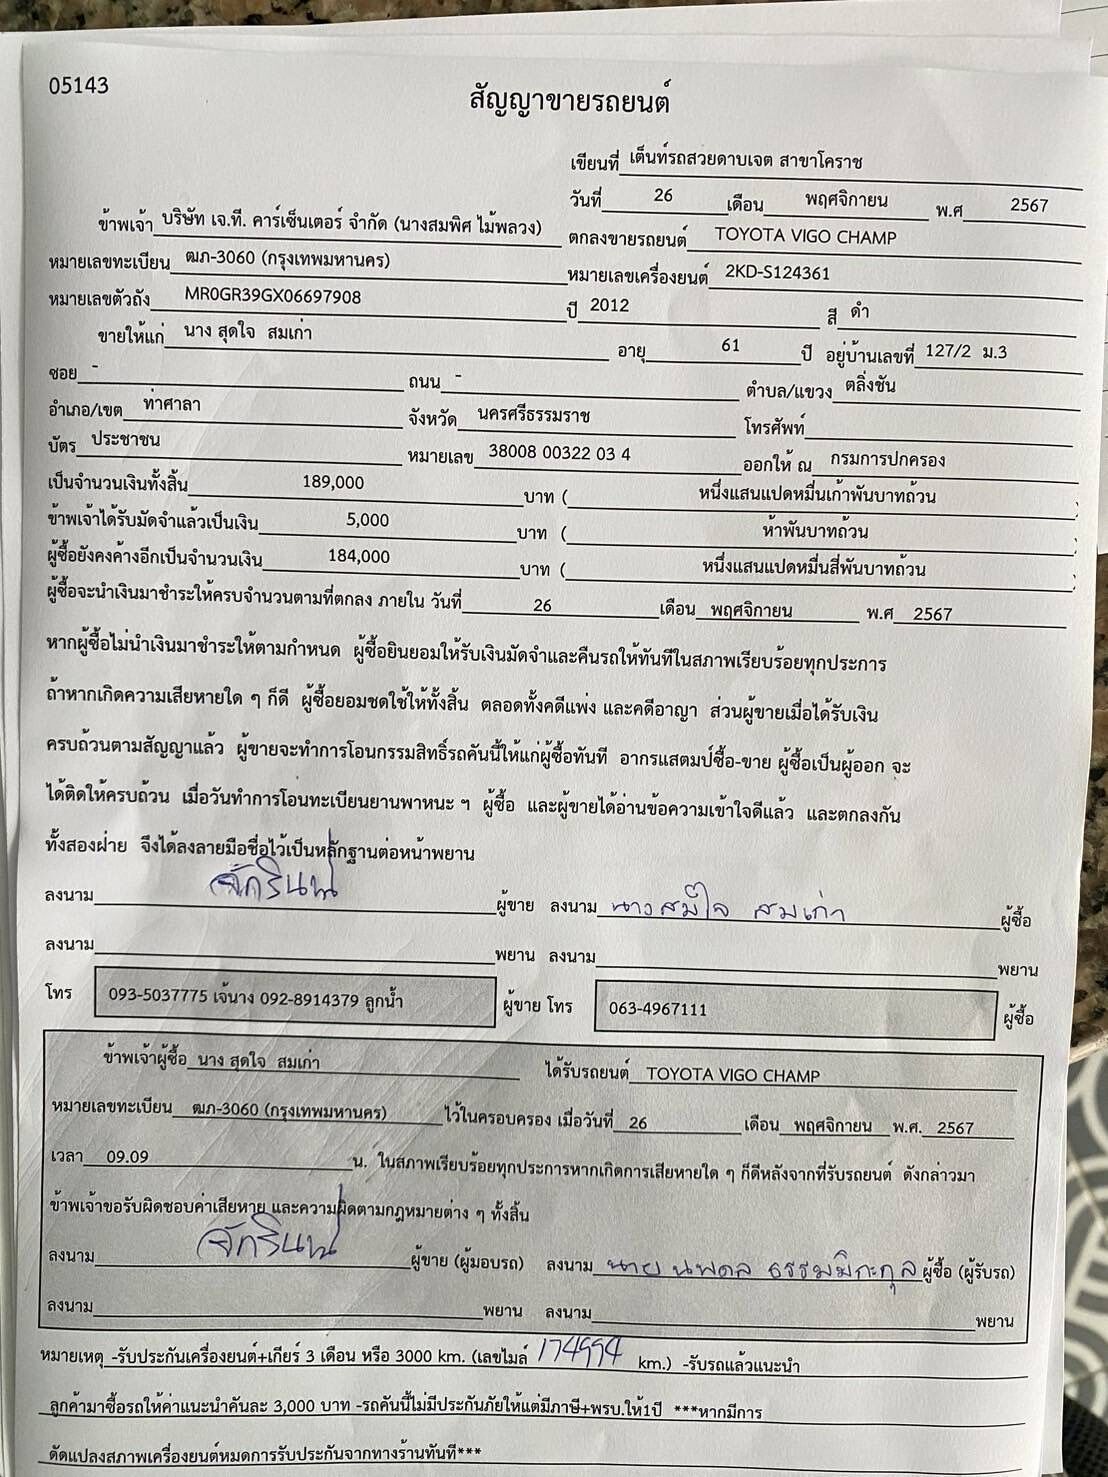 05143
สัญญาขายรถยนต์
เขียนที่ เต็นท์รถสวยดาบเจต สาขาโคราช
วันที่ 26 เดือน พฤศจิกายน พ.ศ 2567
ข้าพเจ้า บริษัท เจ.ที. คาร์เซ็นเตอร์ จำกัด (นางสมพิศ ไม้พลวง) ตกลงขายรถยนต์ TOYOTA VIGO CHAMP
หมายเลขทะเบียน ฒภ-3060 (กรุงเทพมหานคร) หมายเลขเครื่องยนต์ 2KD-S124361
หมายเลขตัวถัง MR0GR39GX06697908 ปี 2012 สี ดำ
ขายให้แก่ นาง สุดใจ สมเก่า อายุ 61 ปี อยู่บ้านเลขที่ 127/2 ม.3
ซอย - ถนน - ตำบล/แขวง ตลิ่งชัน
อำเภอ/เขต ท่าศาลา จังหวัด นครศรีธรรมราช โทรศัพท์
บัตร ประชาชน หมายเลข 38008 00322 03 4 ออกให้ ณ กรมการปกครอง
เป็นจำนวนเงินทั้งสิ้น 189,000 บาท ( หนึ่งแสนแปดหมื่นเก้าพันบาทถ้วน )
ข้าพเจ้าได้รับมัดจำแล้วเป็นเงิน 5,000 บาท ( ห้าพันบาทถ้วน )
ผู้ซื้อยังคงค้างอีกเป็นจำนวนเงิน 184,000 บาท ( หนึ่งแสนแปดหมื่นสี่พันบาทถ้วน )
ผู้ซื้อจะนำเงินมาชำระให้ครบจำนวนตามที่ตกลง ภายใน วันที่ 26 เดือน พฤศจิกายน พ.ศ 2567
หากผู้ซื้อไม่นำเงินมาชำระให้ตามกำหนด ผู้ซื้อยินยอมให้รับเงินมัดจำและคืนรถให้ทันทีในสภาพเรียบร้อยทุกประการ
ถ้าหากเกิดความเสียหายใด ๆ ก็ดี ผู้ซื้อยอมชดใช้ให้ทั้งสิ้น ตลอดทั้งคดีแพ่ง และคดีอาญา ส่วนผู้ขายเมื่อได้รับเงิน
ครบถ้วนตามสัญญาแล้ว ผู้ขายจะทำการโอนกรรมสิทธิ์รถคันนี้ให้แก่ผู้ซื้อทันที อากรแสตมป์ซื้อ-ขาย ผู้ซื้อเป็นผู้ออก จะ
ได้ติดให้ครบถ้วน เมื่อวันทำการโอนทะเบียนยานพาหนะ ฯ ผู้ซื้อ และผู้ขายได้อ่านข้อความเข้าใจดีแล้ว และตกลงกัน
ทั้งสองฝ่าย จึงได้ลงลายมือชื่อไว้เป็นหลักฐานต่อหน้าพยาน
ลงนาม ผู้ขาย ลงนาม นาง สมใจ สมเก่า ผู้ซื้อ
ลงนาม พยาน ลงนาม พยาน
โทร 093-5037775 เจ้นาง 092-8914379 ลูกน้ำ ผู้ขาย โทร 063-4967111 ผู้ซื้อ
ข้าพเจ้าผู้ซื้อ นาง สุดใจ สมเก่า ได้รับรถยนต์ TOYOTA VIGO CHAMP
หมายเลขทะเบียน ฒภ-3060 (กรุงเทพมหานคร) ไว้ในครอบครอง เมื่อวันที่ 26 เดือน พฤศจิกายน พ.ศ. 2567
เวลา 09.09 น. ในสภาพเรียบร้อยทุกประการหากเกิดการเสียหายใด ๆ ก็ดีหลังจากที่รับรถยนต์ ดังกล่าวมา
ข้าพเจ้าขอรับผิดชอบค่าเสียหาย และความผิดตามกฎหมายต่าง ๆ ทั้งสิ้น
ลงนาม ผู้ขาย (ผู้มอบรถ) ลงนาม นาย นพดล ธรรมมิกะกุล ผู้ซื้อ (ผู้รับรถ)
ลงนาม พยาน ลงนาม พยาน
หมายเหตุ -รับประกันเครื่องยนต์+เกียร์ 3 เดือน หรือ 3000 km. (เลขไมล์ 174994 km.) -รับรถแล้วแนะนำ
ลูกค้ามาซื้อรถให้ค่าแนะนำคันละ 3,000 บาท -รถคันนี้ไม่มีประกันภัยให้แต่มีภาษี+พรบ.ให้1ปี ***หากมีการ
ดัดแปลงสภาพเครื่องยนต์หมดการรับประกันจากทางร้านทันที***